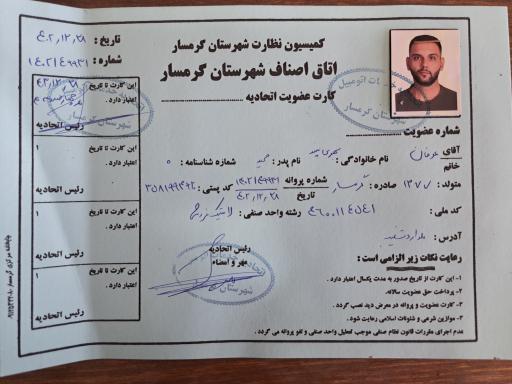 کمیسیون نظارت شهرستان گرمسار
اتاق اصناف شهرستان گرمسار
کارت عضویت اتحادیه
تاریخ : ۴۰۲,۱۲,۲۸
شماره : ۱۴۰۲۱۴۹۹۳۱
شماره عضویت :
آقای
خانم
عرفان
نام خانوادگی :
نام پدر :
شماره شناسنامه : ۰
متولد : ۱۳۷۷
صادره : گرمسار
شماره پروانه ۱۴۰۲۱۴۹۹۳۱
تاریخ ۴۰۲,۱۲,۲۸
کد پستی : ۳۵۸۱۹۹۴۹۲
کد ملی : ۴۶۰۰۱۱۴۵۴۱
رشته واحد صنفی :
آدرس :
رعایت نکات زیر الزامی است :
۱- این کارت از تاریخ صدور به مدت یکسال اعتبار دارد .
۲- پرداخت حق عضویت سالانه .
۳- کارت عضویت و پروانه در معرض دید نصب گردد .
۴- موازین شرعی و شئونات اسلامی رعایت شود .
عدم اجرای مقررات قانون نظام صنفی موجب تعطیل واحد صنفی و لغو پروانه می گردد .
رئیس اتحادیه
مهر و امضاء
این کارت تا تاریخ
اعتبار دارد .
رئیس اتحادیه
۱ این کارت تا تاریخ
اعتبار دارد .
رئیس اتحادیه
۱ این کارت تا تاریخ
اعتبار دارد .
رئیس اتحادیه
۱ این کارت تا تاریخ
اعتبار دارد .
رئیس اتحادیه